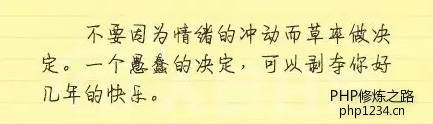 不要因为情绪的冲动而草率做决
定。一个愚蠢的决定，可以剥夺你好
几年的快乐。
PHP修炼之路
php1234.cn